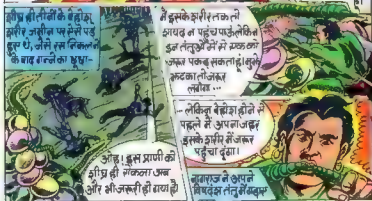 शीघ्र ही तीनों के बेहोश
शरीर जमीन पर ऐसे पड़े
हुए थे, जैसे रस निकलने
के बाद गन्ने का भूसा-
ओह! इस प्राणी को
शीघ्र ही रोकना अब
और भी जरूरी हो गया है।
मैं इसके शरीर तक तो
शायद न पहुंच पाऊं, लेकिन
इन तंतुओं में से एक को
जरूर पकड़ सकता हूं। मुझे
झटका तो जरूर
लगेगा...
...लेकिन बेहोश होने से
पहले मैं अपना जहर
इसके शरीर में जरूर
पहुंचा दूंगा।
नागराज ने अपने
विषदंत तंतु में गड़ाए